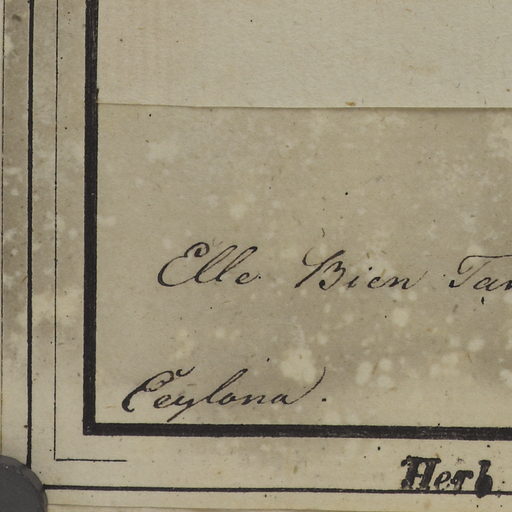 Elle Bien Tan
Ceylona.
Herb.